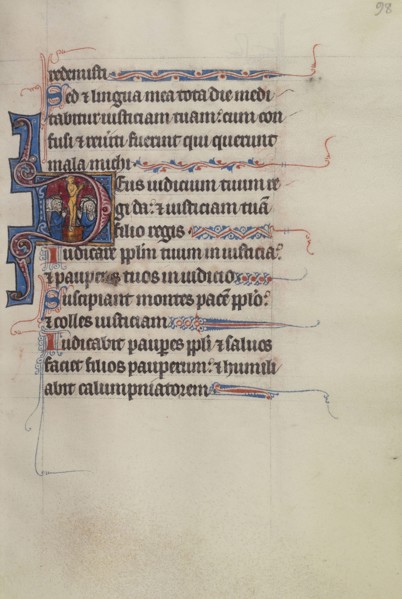 98
redemisti
Sed & lingua mea tota die medi
tabitur iusticiam tuam: cum con
fusi & reuiti fuerint qui querunt
mala michi
Deus iudicium tuum re
gi da: & iusticiam tuā
filio regis
Iudicare pplm tuum in iusticia:
& pauperes tuos in iudicio
Suscipiant montes pacē pplo:
& colles iusticiam
Iudicabit paupes ppli & saluos
faciet filios pauperum: & humili
abit calumpniatorem